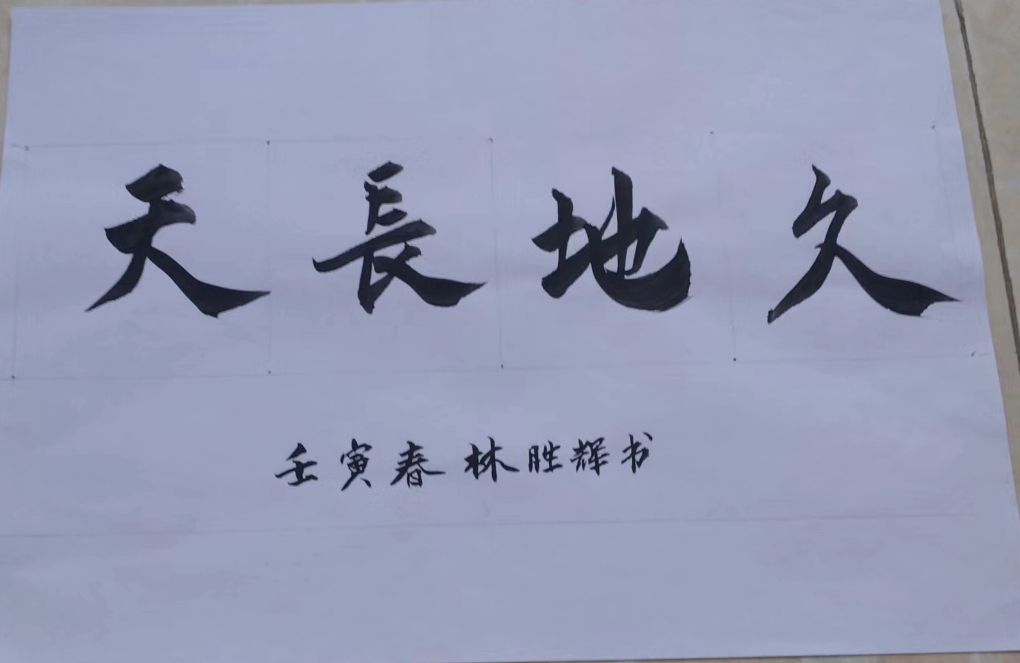 天長地久
壬寅春 林胜辉书